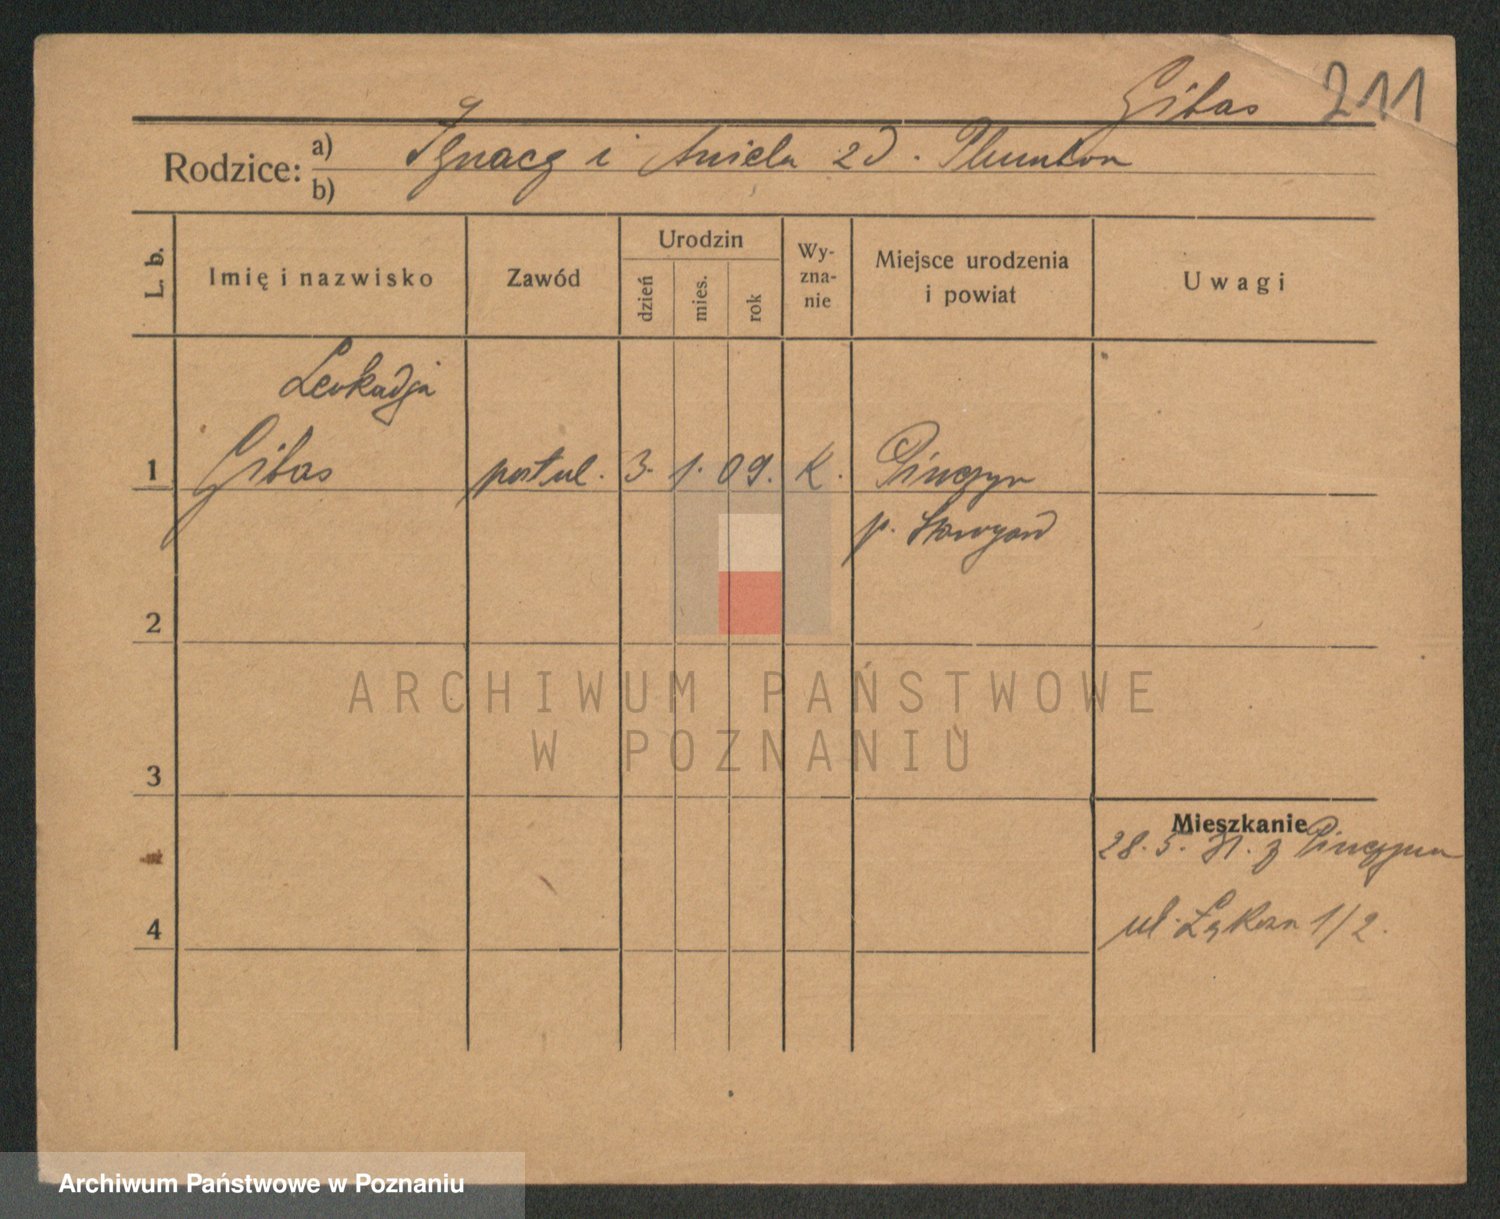 Gibas 211
Rodzice: a) Ignacy i Aniela zd.
b)
L. b.
Imię i nazwisko
Zawód
Urodzin
dzień
mies.
rok
Wy-
zna-
nie
Miejsce urodzenia
i powiat
Uwagi
Leokadja
1 Gibas postul. 3. 1. 09. K. Pinczyn
p. Starogard
2
3
4
ARCHIWUM PAŃSTWOWE
W POZNANIU
Mieszkanie
28. 5. 31. z Pinczyna
ul. Łąkowa 1/2.
Archiwum Państwowe w Poznaniu